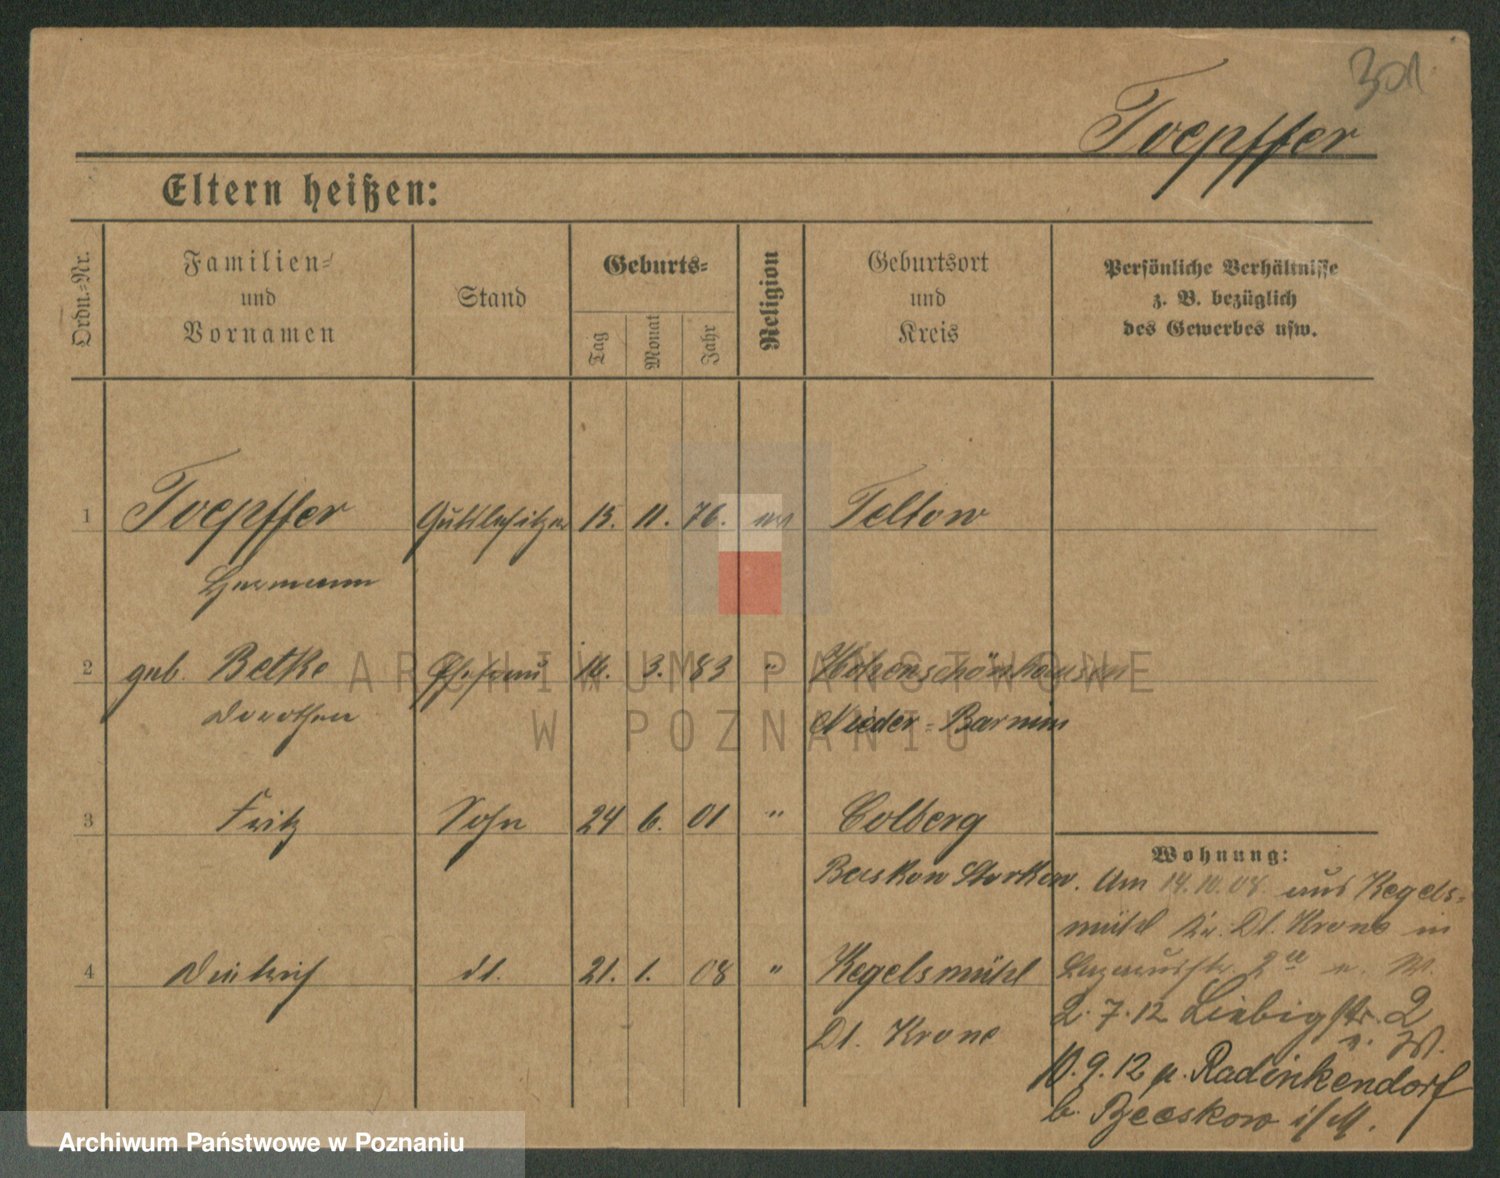 301.
Toepffer
Eltern heißen:
Ordn.-Nr.
Familien-
und
Vornamen
Stand
Geburts-
Tag
Monat
Jahr
Religion
Geburtsort
und
Kreis
Persönliche Verhältnisse
z. B. bezüglich
des Gewerbes usw.
1 Toepffer Gutsbesitzer 11. 76. ev Teltow
Hermann
2 geb. Betke Ehefrau 16. 3. 83 " Hohenschönhausen
Dorothea Nieder-Barnim
3 Fritz Sohn 24 6. 01 " Colberg
Beeskow Storkow.
4 Dietrich dt. 21. 1. 08 " Kegelsmühl
Dt. Krone
Wohnung:
Am 14.10.08 aus Kegels-
mühl Kr. Dt. Krone in
2 W.
2.7.12 Liebigstr. 2
v. W.
10.9.12 n. Radinkendorf
b. Beeskow i/M.
ARCHIWUM PAŃSTWOWE
W POZNANIU
Archiwum Państwowe w Poznaniu